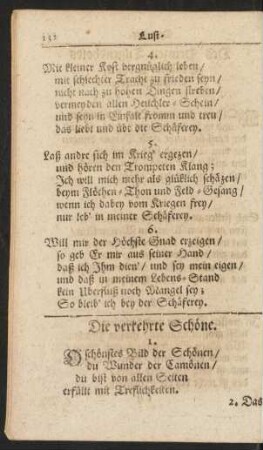 132 Lust-
4.
Mit kleiner Kost vergnüglich leben/
mit schlechter Tracht zu frieden seyn/
nicht nach zu hohen Dingen streben/
vermeyden allen Heuchler-Schein/
und seyn in Einfalt fromm und treu/
das liebt und übt die Schäferey.
5.
Laß andre sich im Krieg' ergezen/
und hören den Trompeten Klang;
Ich will mich mehr als glüklich schäzen/
beym Flöthen-Thon und Feld-Gesang/
wenn ich dabey vom Kriegen frey/
nur leb' in meiner Schäferey.
6.
Will mir der Höchste Gnad erzeigen/
so geb Er mir aus seiner Hand/
daß ich Ihm dien'/ und sey mein eigen/
und daß in meinem Lebens-Stand
kein Uberfluß noch Mangel sey;
So bleib' ich bey der Schäferey.
Die verkehrte Schöne.
1.
O schönstes Bild der Schönen/
du Wunder der Camönen/
du bist von allen Seiten
erfüllt mit Treflichkeiten.
2. Das